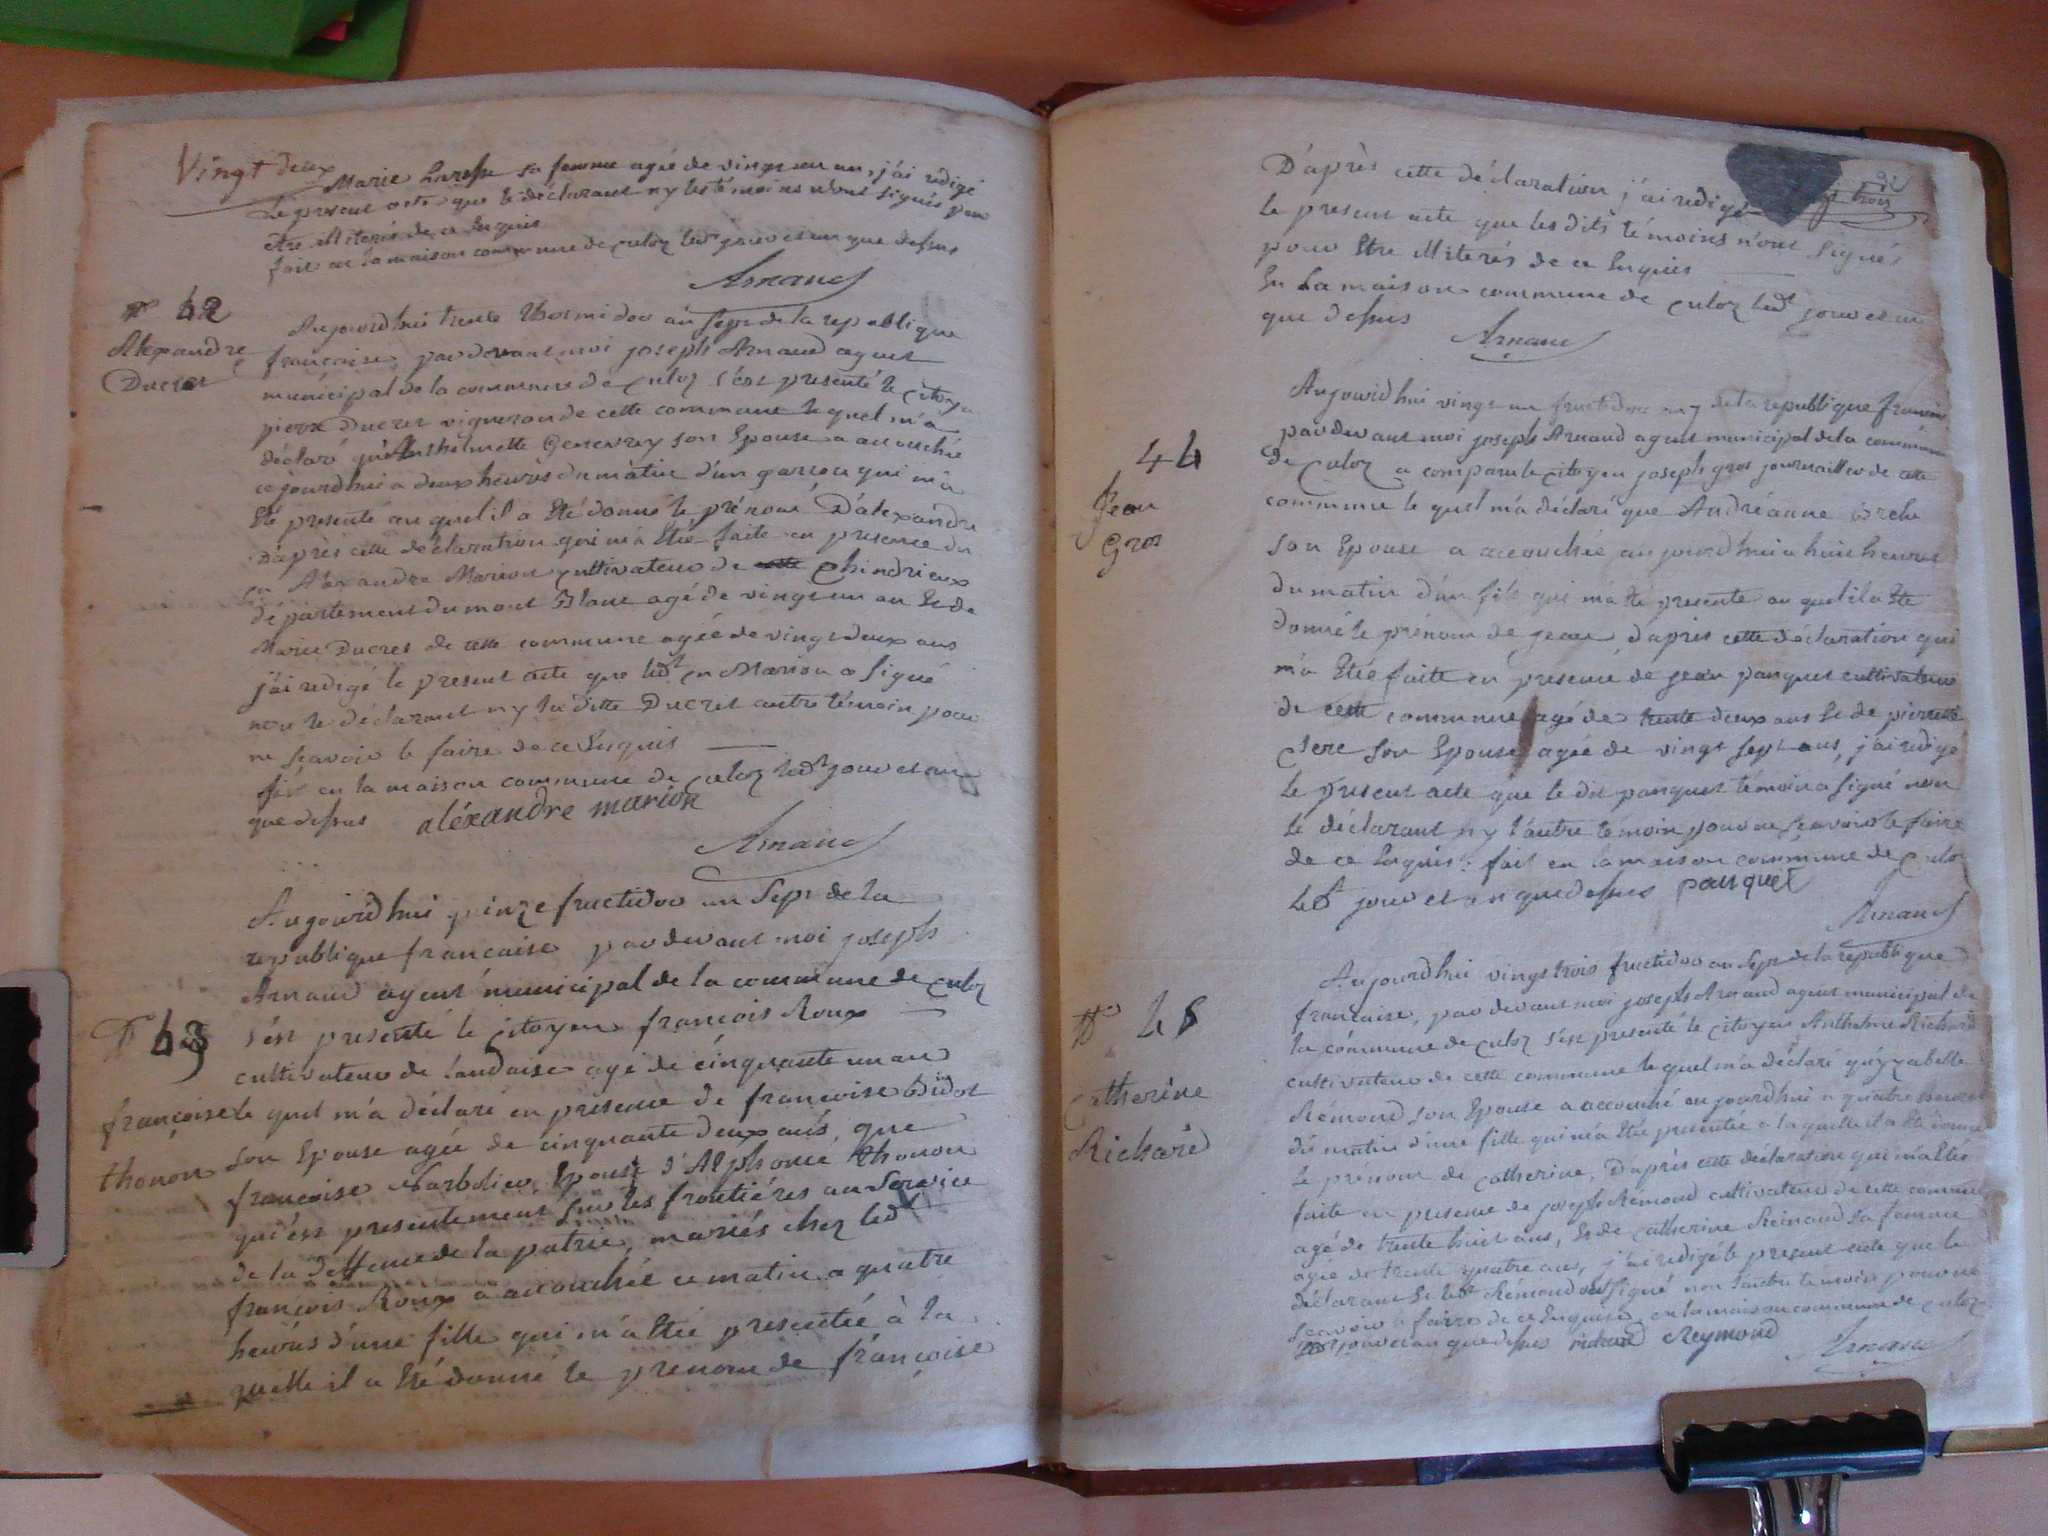 Vingt deux
Marie sa femme agée de vingt un an, j'ai redigé
Le present acte que le déclarant n'y les témoins n'ont signés pour
être Miterés de ce Enquis
fait en la maison commune de Culoz led. jour et an que dessus
Arnaud
N° 42
Alexandre
Ducret
Aujourd'hui trente thermidor an Sept de la republique
francaise, par devant moi joseph Arnaud agent
municipal de la commune de Culoz s'est presenté le Citoyen
pierre Ducret vigneron de cette commune le quel m'a
déclaré qu'Anthelmette Genevrey son Epouse a accouchée
cejourd'hui a deux heures du matin d'un garcon qui m'a
Eté presenté au quel il a Eté donné le prénom D'alexandre
D'après cette déclaration qui m'a Eté faite en presence du
en Alexandre Marion cultivateur de cette Chindrieux
département du mont Blanc agé de vingt un an Et de
Marie Ducret de cette commune agée de vingt deux ans
j'ai redigé le present acte que led. en Marion a signé
non le déclarant n'y la ditte Ducret autre témoin pour
ne sçavoir le faire de ce Enquis
fait en la maison commune de Culoz led. jour et an
que dessus alèxandre marion
Arnaud
N° 43
françoise
thonon
Aujourd'hui quinze fructidor an Sept de la
republique francaise par devant moi joseph
Arnaud agent municipal de la commune de Culoz
s'est presenté le Citoyen françois Roux
cultivateur de Landaise agé de cinquante un an
le quel m'a déclaré en présence de francoise Bidot
son Epouse agée de cinquante deux ans, que
francoise Epouse d'Alphonce thonon
qui est presentement sur les frontiéres au Service
de la deffence de la patrie, mariés chez led.
françois Roux a accouchée ce matin a quatre
heures d'une fille qui m'a Etée presentée à la
quelle il a Eté donné le prenom de françoise
92
D'après cette déclaration j'ai redigé
Le present acte que les dits témoins n'ont signés
pour Etre Miterés de ce Enquis
En La maison commune de Culoz led. jour et an
que dessus
Arnaud
44
Jean
Gros
Aujourd'hui vingt un fructidor an 7 de la republique francaise
par devant moi joseph Arnaud agent municipal de la commune
de Culoz a comparu le Citoyen joseph gros journaillier de cette
commune le quel m'a déclaré que Andréanne
son Epouse a accouchée aujourd'hui a huit heures
du matin d'un fils qui m'a Eté presenté au quel il a Eté
donné le prénom de jean, d'après cette déclaration qui
m'a Etée faite en presence de jean panquet cultivateur
de cette commune agé de trente deux ans Et de pierrette
son Epouse agée de vingt sept ans, j'ai redigé
Le present acte que le dit panquet témoin a signé non
Le déclarant n'y l'autre témoin pour ne sçavoir le faire
de ce Enquis. fait en la maison commune de Culoz
led. jour et an que dessus panquet
Arnaud
N° 45
Catherine
Richard
Aujourd'hui vingt trois fructidor an Sept de la republique
francaise, par devant moi joseph Arnaud agent municipal de
la commune de Culoz s'est presenté le Citoyen Anthelme Richard
cultivateur de cette commune le quel m'a déclaré qu'yzabelle
Rémond son Epouse a accouché aujourd'hui a quatre heures
du matin d'une fille qui m'a Etée presentée a la quelle il a Eté donné
Le prénom de Catherine, D'après cette déclaration qui m'a Etée
faite en presence de joseph Rémond cultivateur de cette commune
agé de trente huit ans, Et de Catherine Reinaud sa femme
agée de trente quatre ans, j'ai redigé le present acte que le
déclarant Et led. Rémond ont signé non l'autre temoin pour ne
sçavoir le faire de ce Enquise, en la maison commune de Culoz
jour et an que dessus richard Reymond
Arnaud